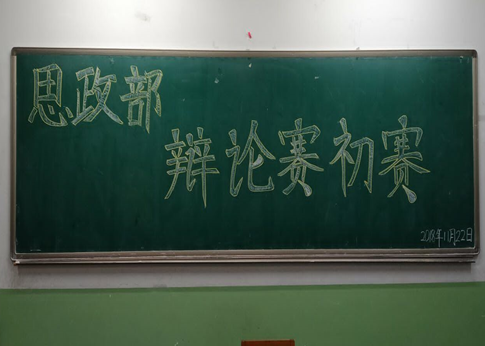 思政部
辩论赛初赛
2018年11月22日